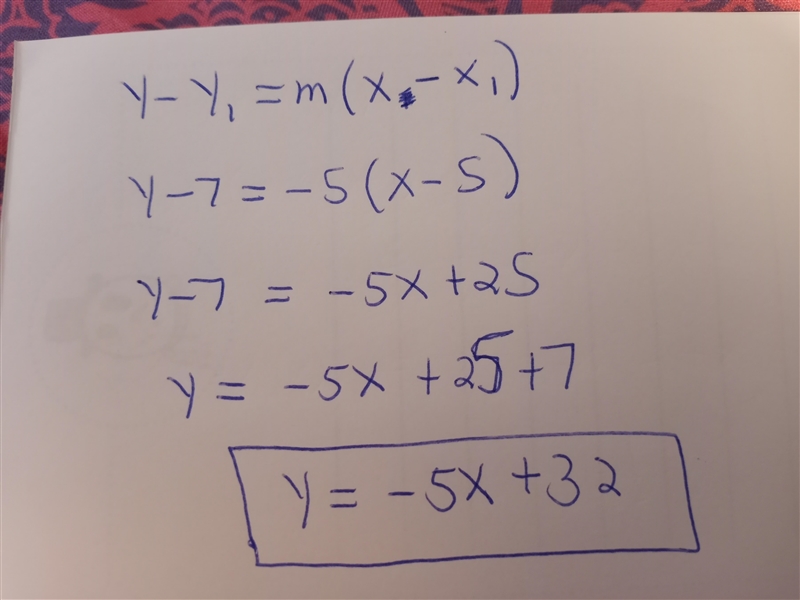 y - y₁ = m(x - x₁)
y - 7 = -5(x - 5)
y - 7 = -5x + 25
y = -5x + 25 + 7
y = -5x + 32